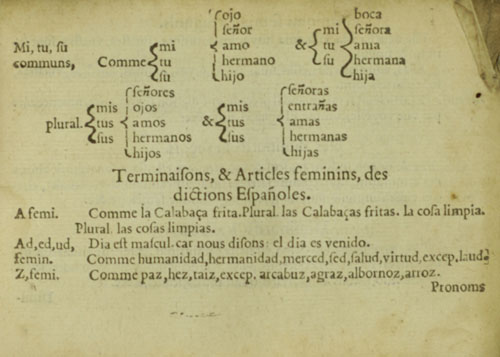 ojo boca
señor señora
Mi, tu, su mi amo mi ama
communs, Comme tu & tu
su hermano su hermana
hijo hija
señores señoras
mis ojos mis entrañas
plural. tus amos & tus amas
sus hermanos sus hermanas
hijos hijas
Terminaisons, & Articles feminins, des
dictions Españoles.
A femi. Comme la Calabaça frita. Plural. las Calabaças fritas. la cosa limpia.
Plural. las cosas limpias.
Ad, ed, ud, Dia est mascul. car nous disons: el dia es venido.
femin. Comme humanidad, hermanidad, merced, sed, salud, virtud, excep. laud.
Z, femi. Comme paz, hez, taiz, excep. arcabuz, agraz, albornoz, arroz.
Pronoms